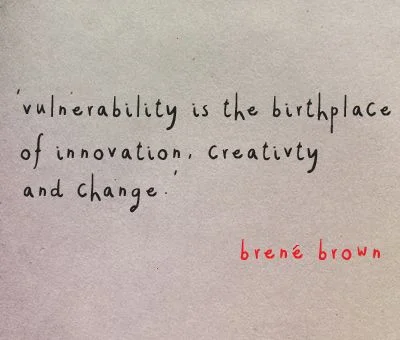 'vulnerability is the birthplace
of innovation, creativty
and change.'
brené brown